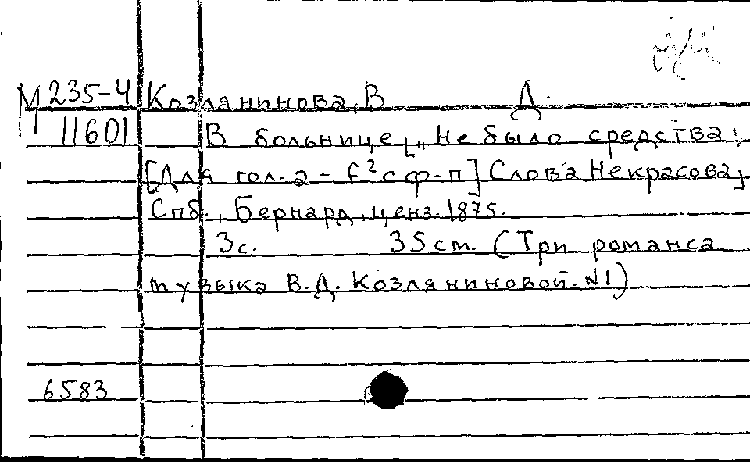 М 235-4 Козлянинова, В. Д.
11601 В больнице, „Не было средства:
[Для гол. a - f² с ф-п] Слова Некрасова,
Спб., Бернард, ценз. 1875.
3с. 35 cm. (Три романса
музыка В. Д. Козляниновой. №1)
6583